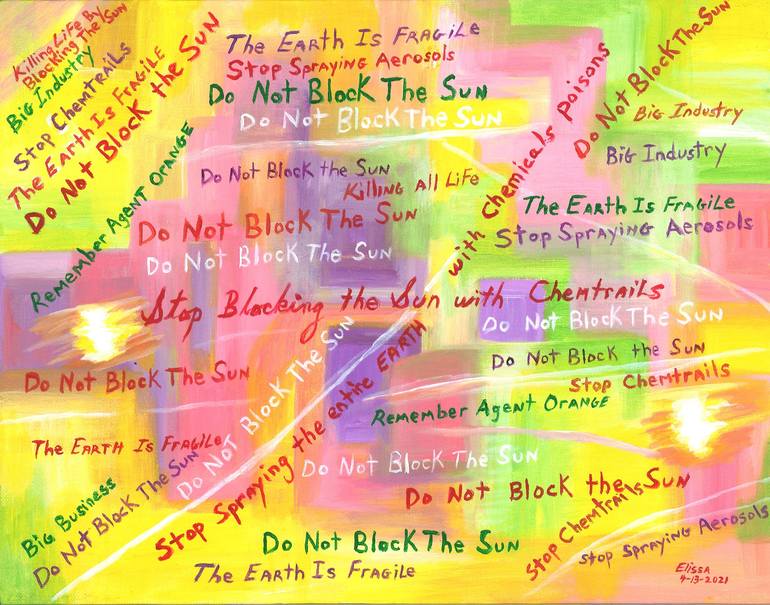 Killing Life By
Blocking The Sun
Big Industry
Stop Chemtrails
The Earth Is Fragile
Do Not Block the Sun
Remember Agent Orange
The Earth Is Fragile
Stop Spraying Aerosols
Do Not Block The Sun
Do Not Block The Sun
Do Not Block the Sun
Killing All Life
Do Not Block The Sun
Do Not Block The Sun
Do Not Block The Sun
Big Industry
Big Industry
The Earth Is Fragile
Stop Spraying Aerosols
Stop Blocking the Sun with Chemtrails
Do Not Block The Sun
Do Not Block the Sun
Stop Chemtrails
Remember Agent Orange
Do Not Block The Sun
Do Not Block The Sun
Stop Spraying the entire EARTH with Chemicals Poisons
The Earth Is Fragile
Do Not Block The Sun
Do Not Block the Sun
Big Business
Do Not Block The Sun
Do Not Block The Sun
The Earth Is Fragile
Stop Chemtrails
Stop Spraying Aerosols
Elissa
4-13-2021